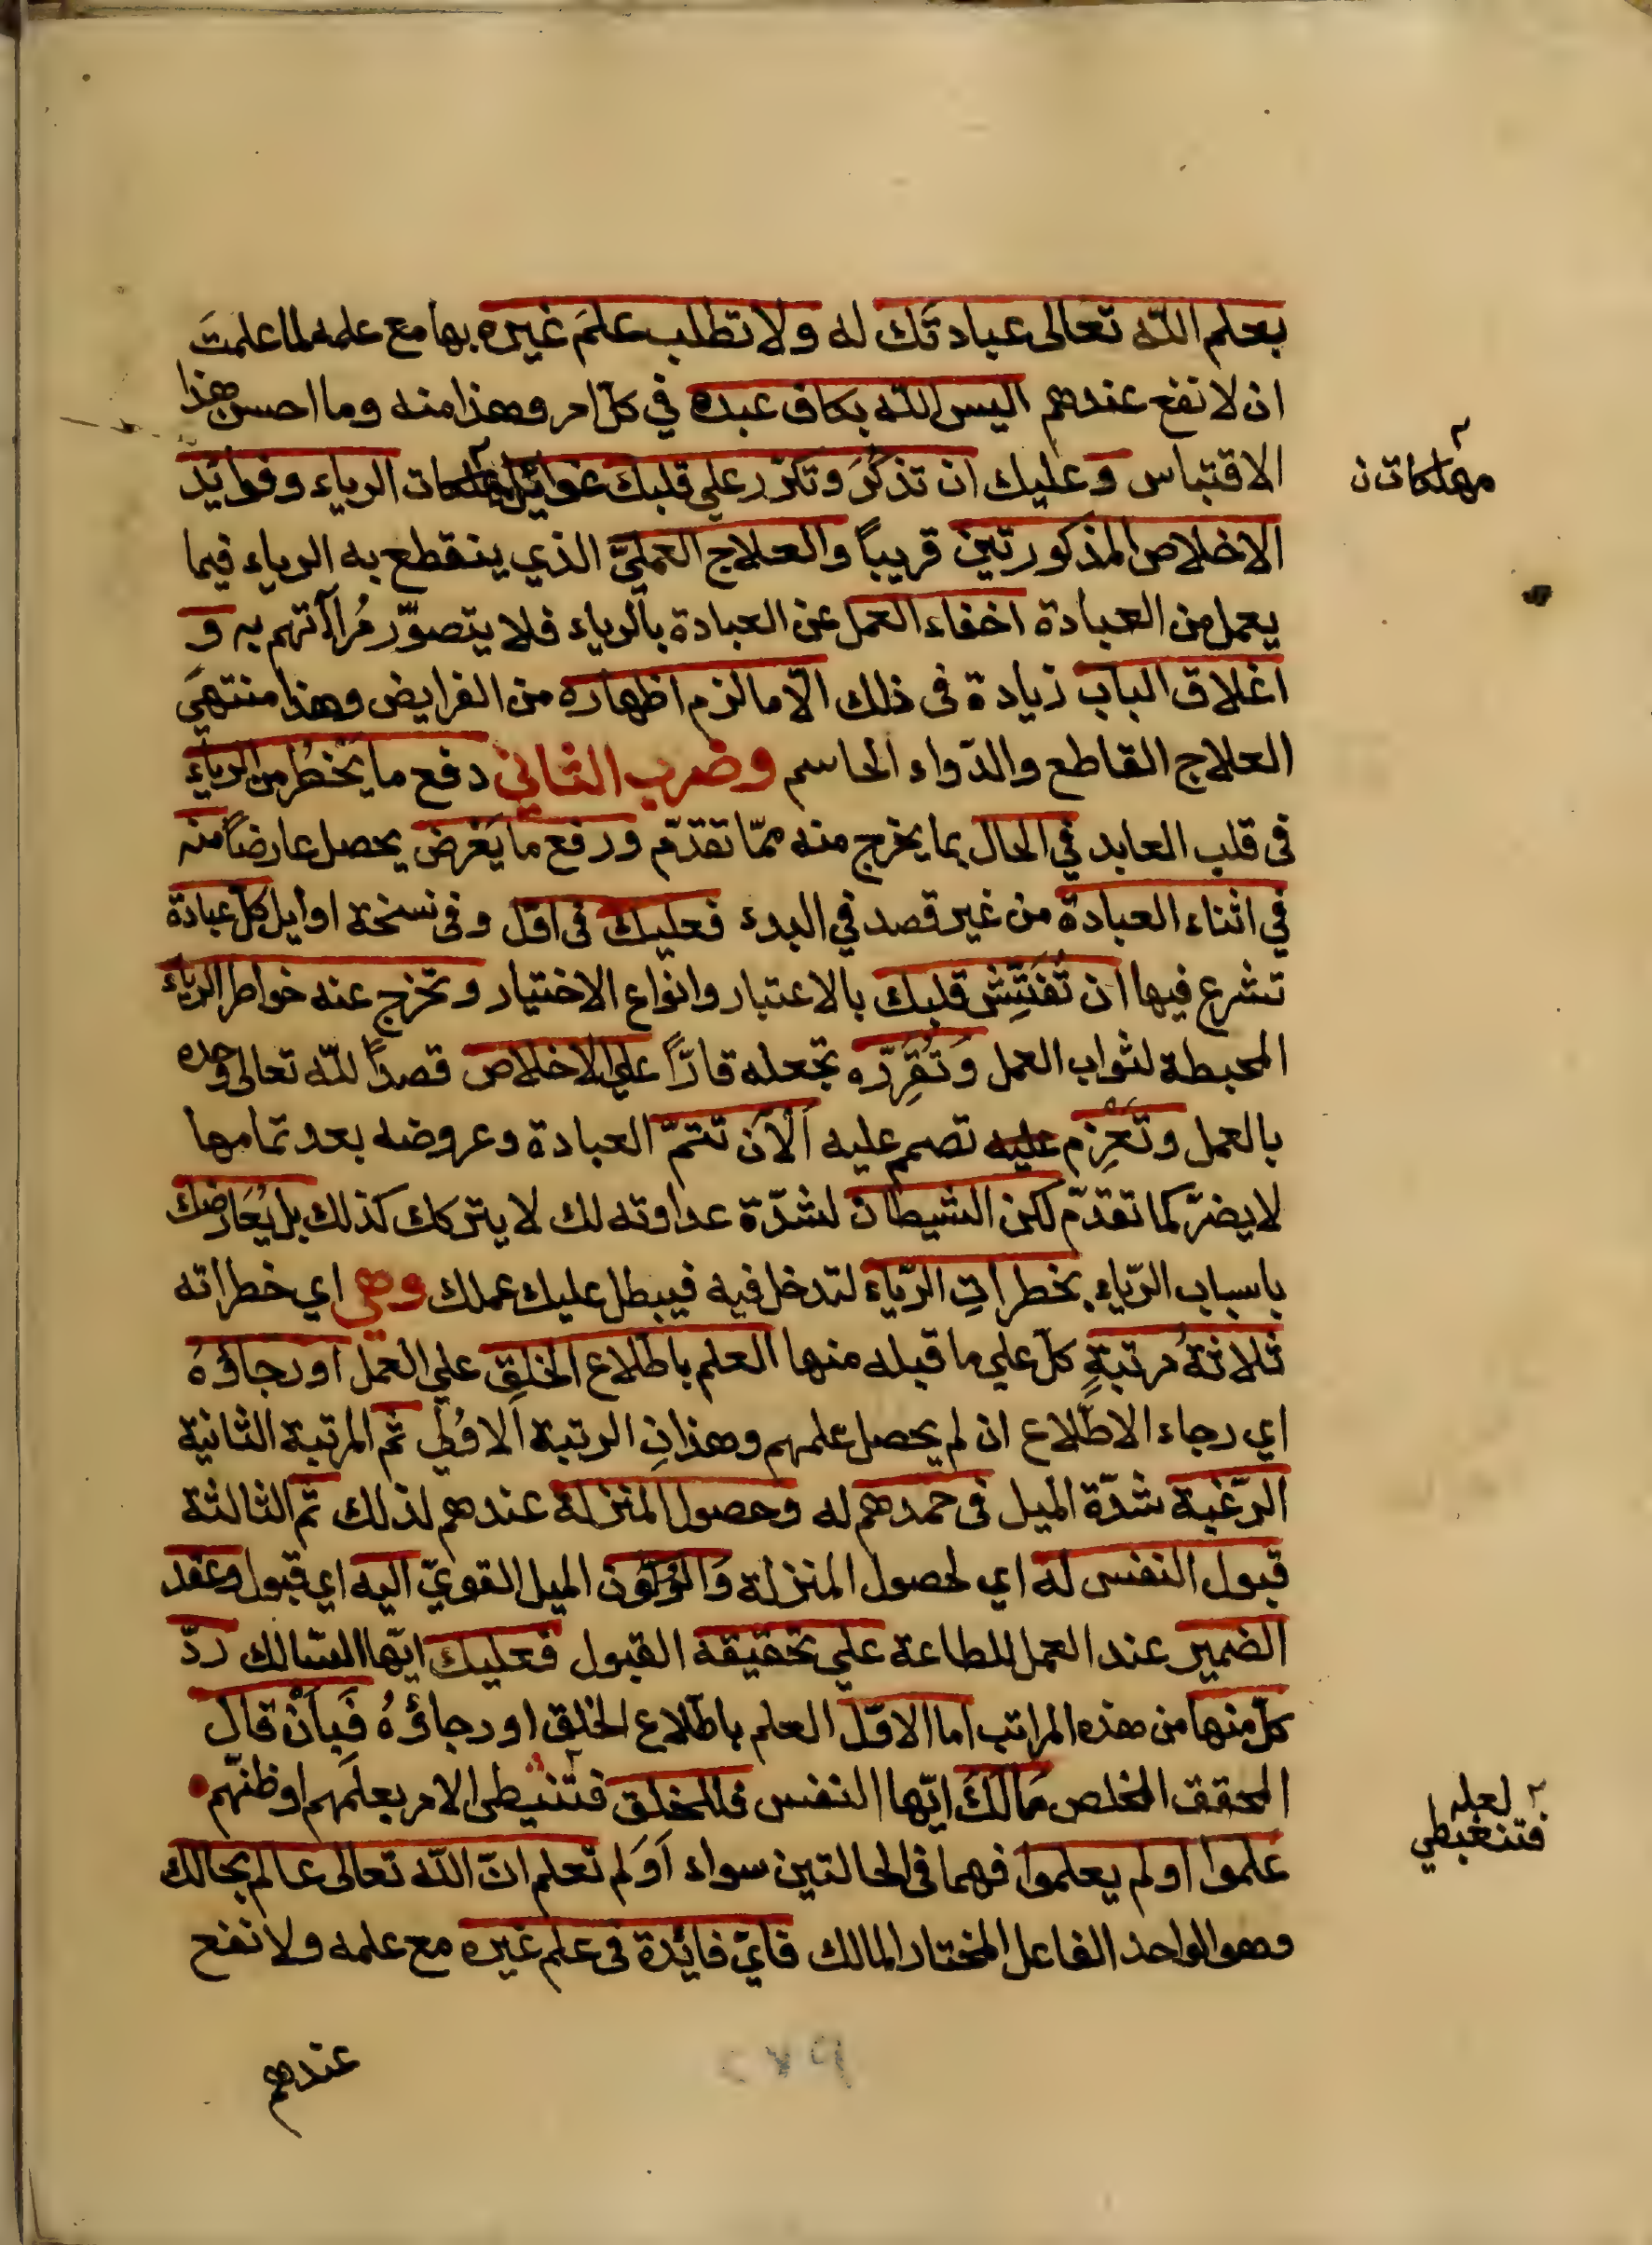 بعلم اللّه تعالى عبادتَك له ولا تطلب علمَ غيره بها مع علمه لما علمتَ
ان لا نفع عندهم اليس اللّه بكاف عبده في كلّ امر وهذا منه وما احسن هذا
الاقتباس وعليك ان تذكُرَ وتكرّر علي قلبك غوائل الرياء وفوايد
مهلكات ن
الاخلاص المذكورتين قريباً والعلاج العمليّ الذي ينقطع به الرياء فيما
يعمل من العبادة اخفاء العمل عن العبادة بالرياء فلا يتصوّر مُراآتهم به و
اغلاق الباب زيادة فى ذلك الّا ما لزم اظهاره من الفرايض وهذا منتهىَ
العلاج القاطع والدّواء الحاسم وضرب الثاني دفع ما يَخطُر من الرياء
فى قلب العابد في الحال بما يخرج منه ممّا تقدّم ورفع ما يَعْرض يحصل عارضاً منه
في اثناء العبادة من غير قصد في البدء فعليك فى اوّل وفى نسخة اوايل كلّ عبادة
تشرع فيها ان تُفَتِّش قلبك بالاعتبار وانواع الاختيار وتخرج عنه خواطر الرياء
المحبطة لثواب العمل وَتُقِرّه تجعله قارّاً علي الاخلاص قصداً للّه تعالى وحده
بالعمل وتَعْزِم عليه تصمم عليه اَلآن تتمّ العبادة وعروضه بعد تمامها
لا يضرّ كما تقدّم لكن الشيطان لشدّة عداوته لك لا يتركك كذلك بل يُعَارضك
باسباب الرّياء بخطراتِ الرّياء لتدخل فيه فيبطل عليك عملك وهي اي خطراته
ثلاثةُ مرتبةٍ كلّ علي ما قبله منها العلم باطّلاع الخلقِ علي العمل او رجاؤهُ
اي رجاء الاطّلاع ان لم يحصل علمهم وهذانِ الرتبة الاوُلي ثم المرتبة الثانية
الرّغبة شدّة الميل فى حمدهم له وحصول المنزلة عندهم لذلك ثم الثالثة
قبول النفس له اي لحصول المنزلة وَالرّكون الميل القويّ اليه اي قبول وعقد
الضمير عند العمل للطاعة علي تحقيقه القبول فعليك ايّها السّالك ردّ
كلّ منها من هذه المراتب اما الاوّل العلم باطّلاع الخلق او رجاؤهُ فَبِاَنْ قال
المحقق المخلص مَالَكَ ايّها النفس فى الخلق فتنبطى الامر بعلمهم او ظنّهم
لعله
فتنغبطي
علموا او لم يعلموا فهما فى الحالتين سواء اَوَلم تعلم انّ اللّه تعالى عالم بحالك
وهو الواحد الفاعل المختار المالك فايّ فائدة فى علم غيره مع علمه ولا نفع
عندهم